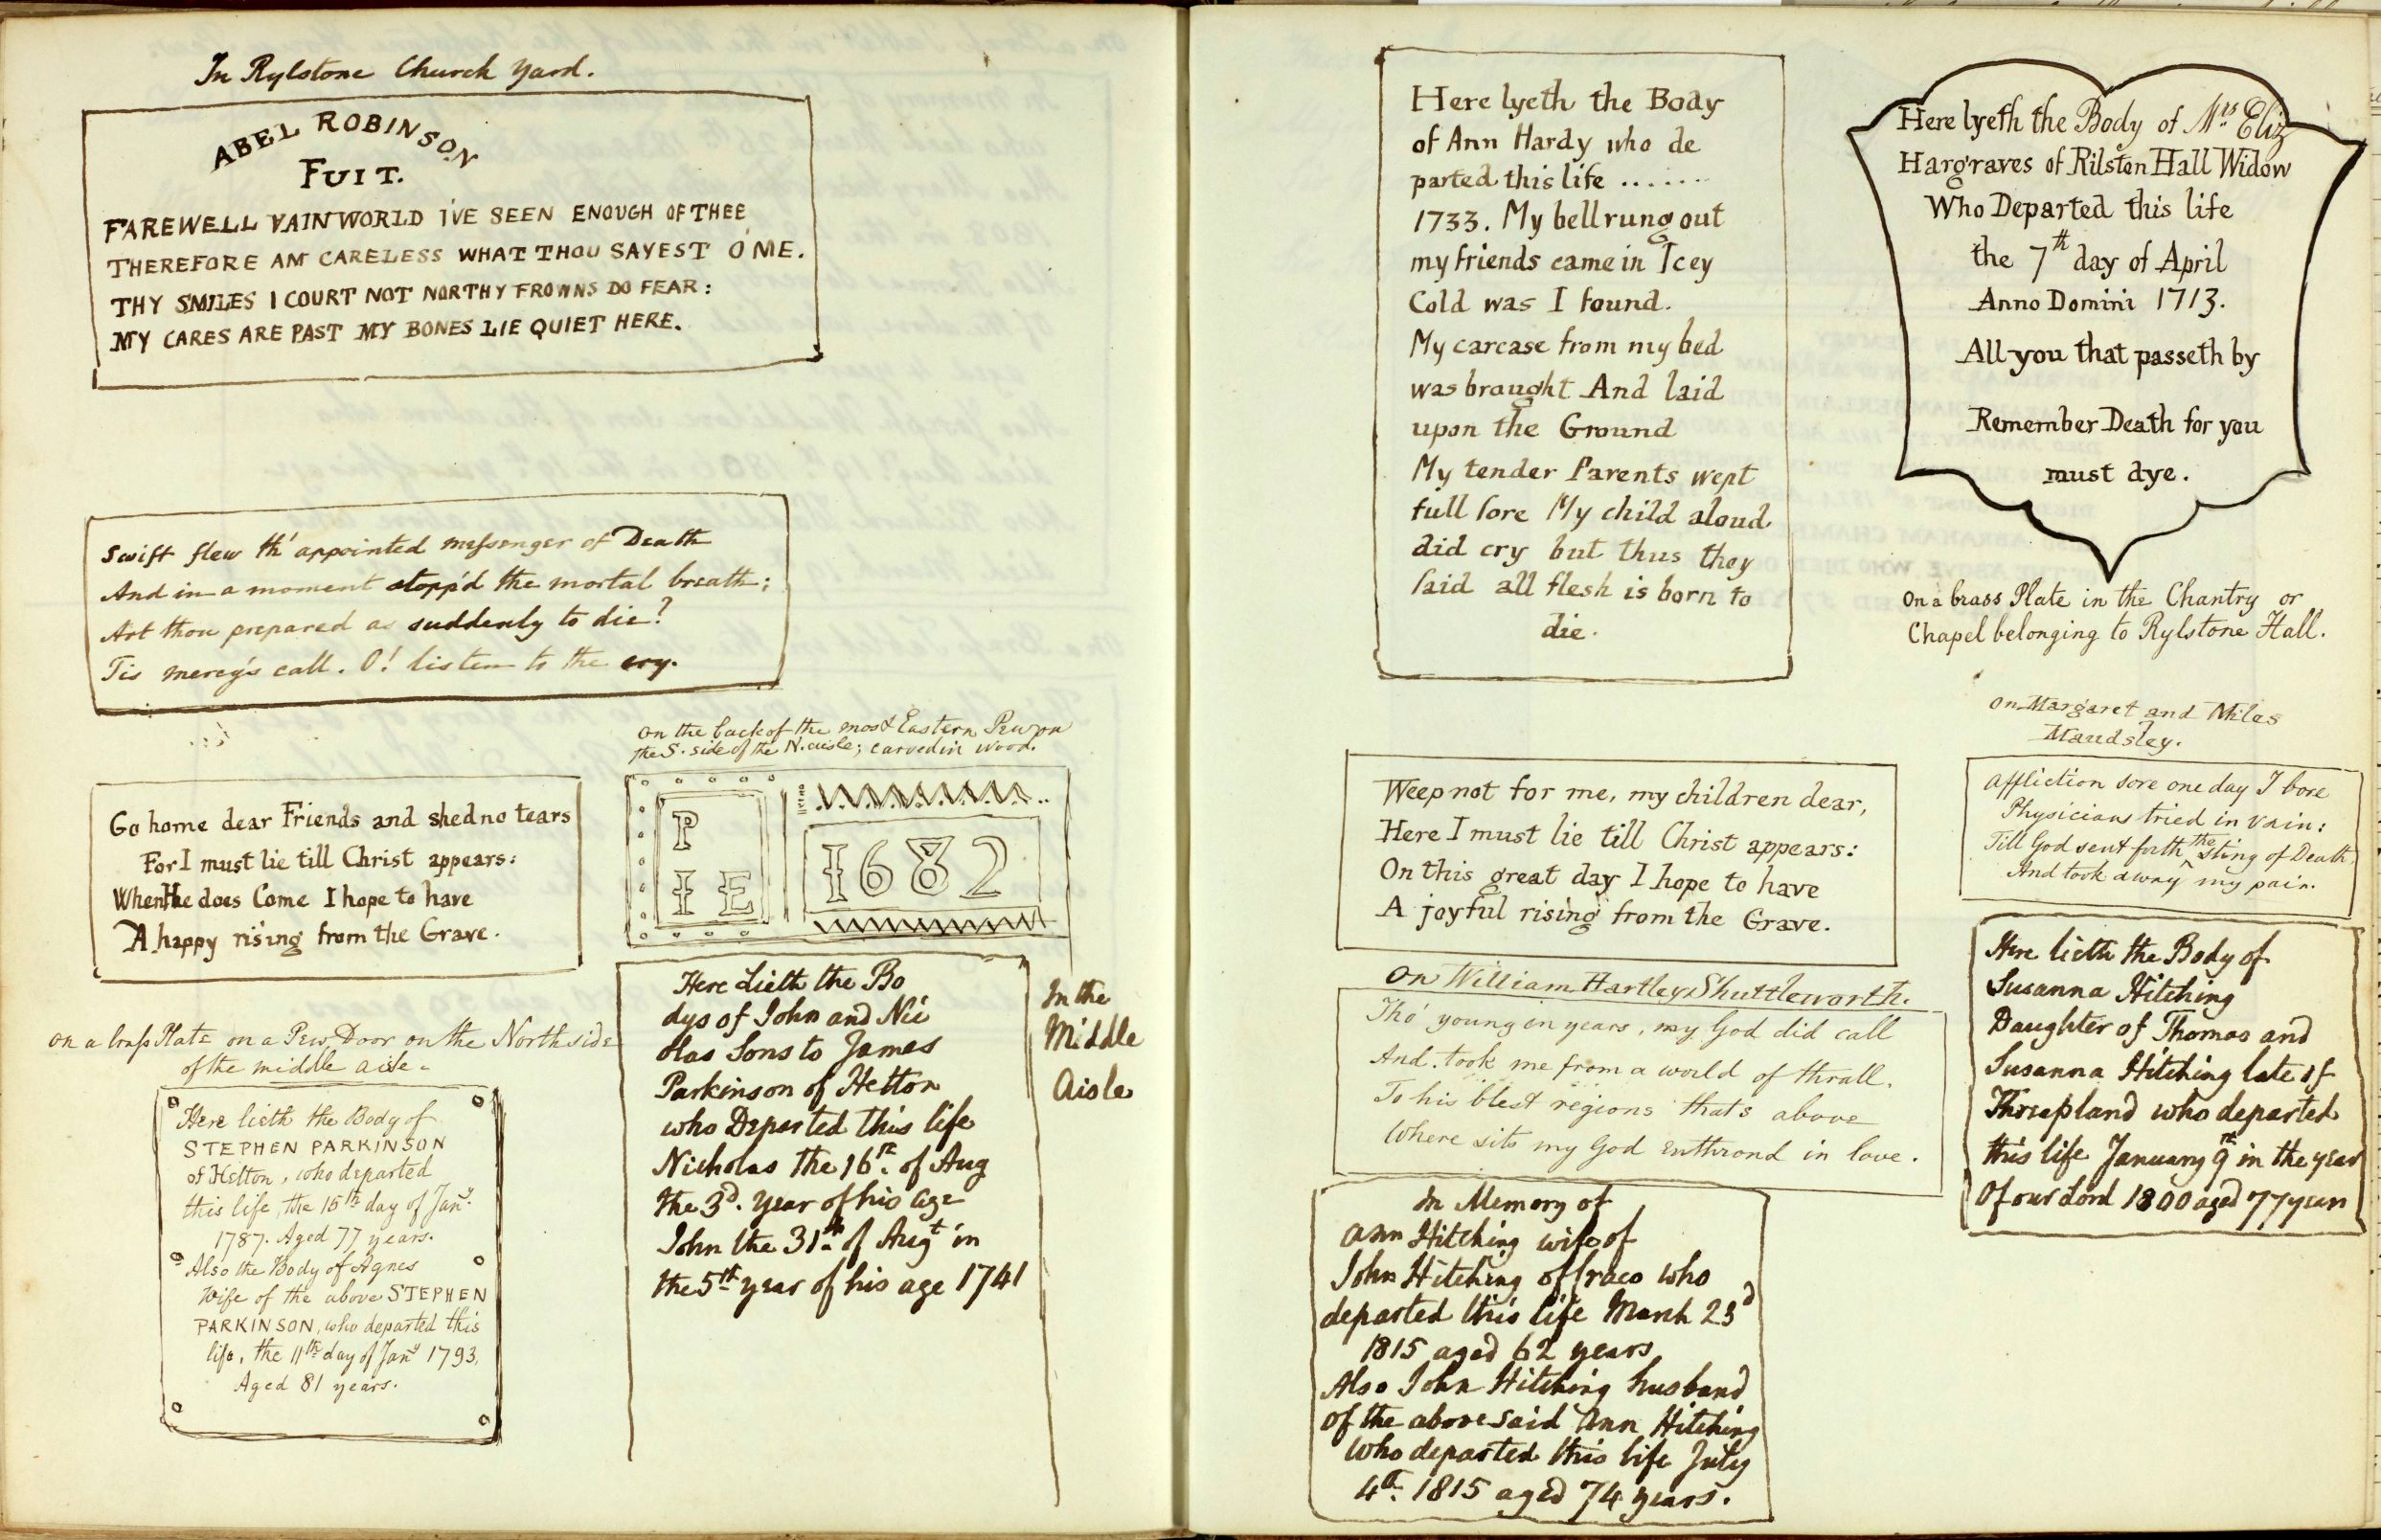 In Rylstone Church Yard.
ABEL ROBINSON
FUIT.
FAREWELL VAIN WORLD I'VE SEEN ENOUGH OF THEE
THEREFORE AM CARELESS WHAT THOU SAYEST O'ME.
THY SMILES I COURT NOT NOR THY FROWNS DO FEAR:
MY CARES ARE PAST MY BONES LIE QUIET HERE.
Swift flew th' appointed messenger of Death
And in a moment stopp'd the mortal breath;
Art thou prepared as suddenly to die?
Tis mercy's call. O! listen to the cry.
Go home dear Friends and shed no tears
For I must lie till Christ appears:
When He does Come I hope to have
A happy rising from the Grave.
on the back of the most Eastern Pew on
the S. side of the N. aisle; carved in wood.
P
I E
1682
on a brass Plate on a Pew Door on the North side
of the middle aisle.
Here lieth the Body of
STEPHEN PARKINSON
of Hetton, who departed
this life, the 15th day of Jany.
1787. Aged 77 years.
Also the Body of Agnes
Wife of the above STEPHEN
PARKINSON, who departed this
life, the 11th day of Jany 1793,
Aged 81 years.
Here Lieth the Bo
dys of John and Nic
olas Sons to James
Parkinson of Hetton
who Departed this life
Nicholas the 16th. of Aug
the 3d. year of his age
John the 31th of Augt in
the 5th year of his age 1741
In the
Middle
Aisle
Here lyeth the Body
of Ann Hardy who de
parted this life .......
1733. My bell rung out
my friends came in Icey
Cold was I found.
My carcase from my bed
was braught And laid
upon the Ground
My tender Parents wept
full sore My child aloud
did cry but thus they
said all flesh is born to
die.
Here lyeth the Body of Mrs Eliz
Hargraves of Rilston Hall Widow
Who Departed this life
the 7th day of April
Anno Domini 1713.
All you that passeth by
Remember Death for you
must dye.
On a brass Plate in the Chantry or
Chapel belonging to Rylstone Hall.
Weep not for me, my children dear,
Here I must lie till Christ appears:
On this great day I hope to have
A joyful rising from the Grave.
on Margaret and Miles
Maudsley.
Affliction sore one day I bore
Physicians tried in vain:
Till God sent forth the sting of Death
And took away my pain.
On William Hartley Shuttleworth.
Tho' young in years, my God did call
And took me from a world of thrall,
To his blest regions that's above
Where sits my God enthrond in love.
Here lieth the Body of
Susanna Hitching
Daughter of Thomas and
Susanna Hitching late of
Threapland who departed
this life January 9th in the year
Of our Lord 1800 aged 77 years
In Memory of
Ann Hitching wife of
John Hitching of Craco who
departed this life March 23d
1815 aged 62 years
Also John Hitching husband
of the above said Ann Hitching
who departed this life July
4th. 1815 aged 74 years.